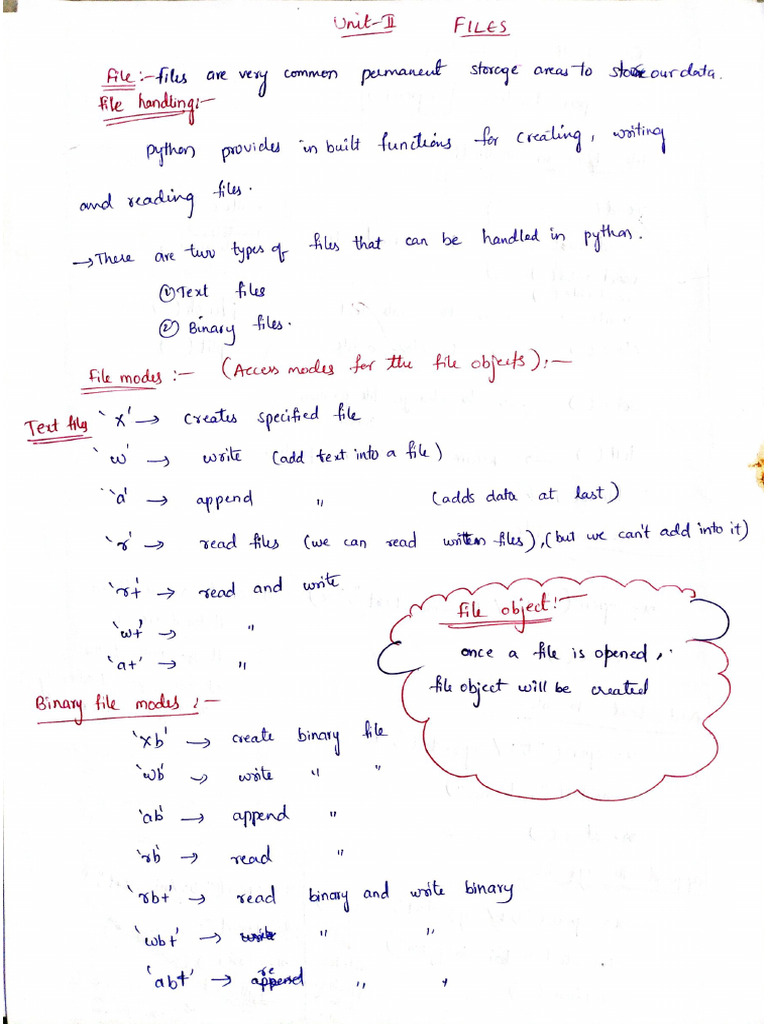 Unit-II FILES
File:- files are very common permanent storage areas to store our data.
File handling:-
python provides in built functions for creating, writing
and reading files.
→ There are two types of files that can be handled in python.
① Text files
② Binary files.
File modes:- (Access modes for the file objects):-
Text files
'x' → creates specified file
'w' → write (add text into a file)
'a' → append " (adds data at last)
'r' → read files (we can read written files), (but we can't add into it)
'r+' → read and write
'w+' → "
'a+' → "
File object:-
once a file is opened,
file object will be created
Binary file modes:-
'xb' → create binary file
'wb' → write " "
'ab' → append "
'rb' → read "
'rb+' → read binary and write binary
'wb+' → " "
'ab+' → " "